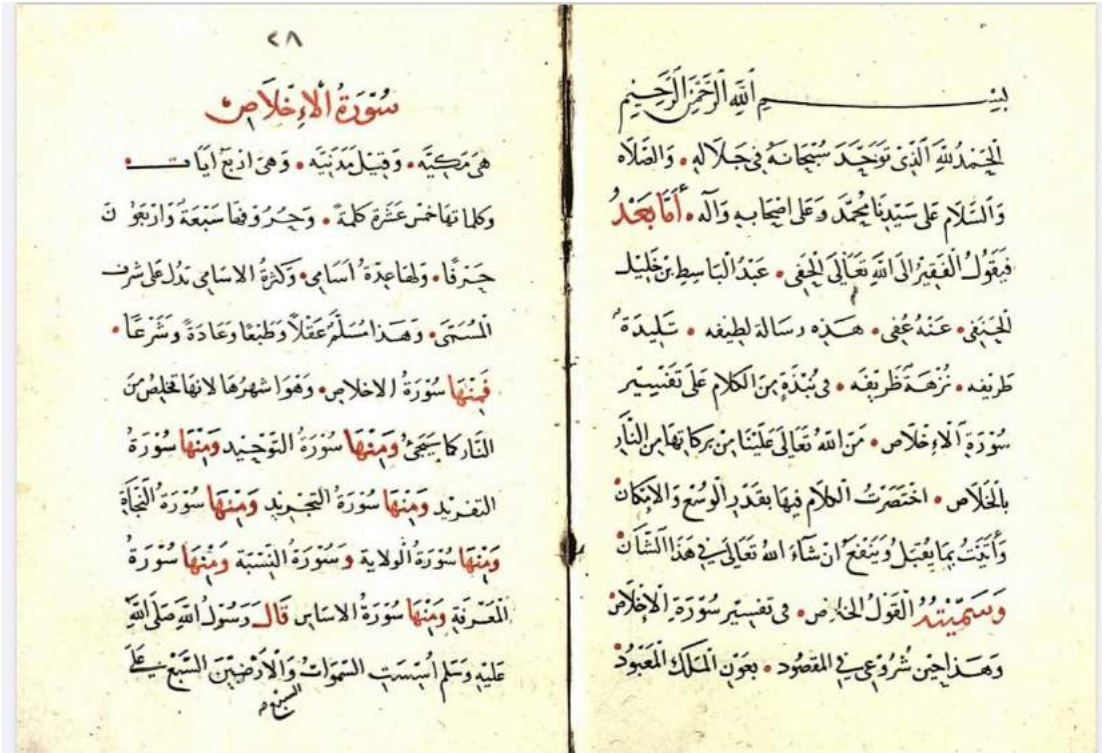 بِسْــــــمِ ٱللَّهِ ٱلرَّحْمٰنِ ٱلرَّحِيمِ
اَلْحَمْدُ لِلَّهِ الَّذِي تَوَحَّدَ سُبْحَانَهُ فِي جَلَالِهِ • وَالصَّلَاه
وَالسَّلَام عَلَى سَيِّدِنَا مُحَمَّد وَعَلَى اَصْحَابِهِ وَآلِه • أَمَّا بَعْدُ
فَيَقُولُ الْفَقِيرُ اِلَى اللَّهِ تَعَالَى الْحَفِي • عَبْدُ الْبَاسِطِ بْنِ خَلِيل
الْحَنَفِي • عَنْهُ عُفِي • هَذِهِ رِسَالَة لَطِيفه • تَلِيدَة
طَرِيفه • نُزْهَة ظَرِيفَه • فِي نُبْذَةٍ مِنَ الْكَلَامِ عَلَى تَفْسِيرِ
سُورَةِ الْاِخْلَاصِ • مَنَّ اللَّهُ تَعَالَى عَلَيْنَا مِنْ بَرَكَاتِهَا مِنَ النَّارِ
بِالْخَلَاصِ • اخْتَصَرْتُ الْكَلَامَ فِيهَا بِقَدْرِ الْوُسْعِ وَالْاِمْكَان •
وَأَتَيْتُ بِمَا يُقْبَلُ وَيَنْفَعُ اِنْ شَاءَ اللَّهُ تَعَالَى فِي هَذَا الشَّأْن •
وَسَمَّيْتُهُ الْقَوْلُ الْخَاص • فِي تَفْسِيرِ سُورَةِ الْاِخْلَاص •
وَهَذَا حِينَ شُرُوعِي فِي الْمَقْصُود • بِعَوْنِ الْمَلِكِ الْمَعْبُود •
٢٨
سُورَةُ الْاِخْلَاصِ •
هِيَ مَكِّيَّه • وَقِيلَ مَدَنِيَّه • وَهِيَ اَرْبَعُ آيَات •
وَكَلِمَاتُهَا خَمْسَ عَشْرَة كَلِمَة • وَحُرُوفُهَا سَبْعَة وَاَرْبَعُونَ
حَرْفًا • وَلَهَا عِدَّةُ اَسَامِي • وَكَثْرَةُ الاسامِي تَدُلُّ عَلَى شَرَف
الْمُسَمَّى • وَهَذَا مُسَلَّمٌ عَقْلًا وَطَبْعًا وَعَادَةً وَشَرْعًا •
فَمِنْهَا سُورَةُ الاخلاص • وَهُوَ اَشْهَرُهَا لانهَا تُخَلِّصُ مِنَ
النَّار كَمَا سَيَجِيءُ وَمِنْهَا سُورَةُ التَّوْحِيد وَمِنْهَا سُورَةُ
التَّفْرِيد وَمِنْهَا سُورَةُ التَّجْرِيد وَمِنْهَا سُورَةُ النَّجَاةِ
وَمِنْهَا سُورَةُ الْوِلَايَة وَسُورَةُ النِّسْبَة وَمِنْهَا سُورَةُ
الْمَعْرِفَة وَمِنْهَا سُورَةُ الاسَاسِ قَالَ رَسُولُ اللَّهِ صَلَّى اللَّهُ
عَلَيْهِ وَسَلَّم اُسِّسَتِ السَّمَوَاتُ وَالْاَرْضِينَ السَّبْع عَلَى